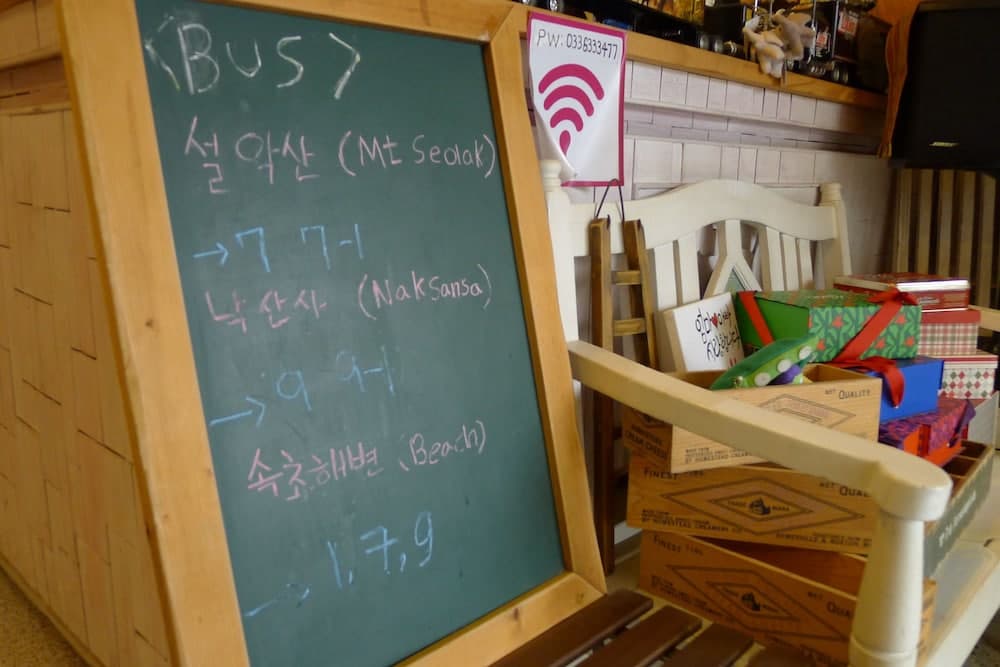 <BUS>
설악산 (Mt Seolak)
→ 7 7-1
낙산사 (NakSansa)
→ 9 9-1
속초해변 (Beach)
→ 1,7,9
PW: 0336333477
BOSE
NET QUALITY
FINEST TYPE
TRADE MARK
FINEST TYPE
NET